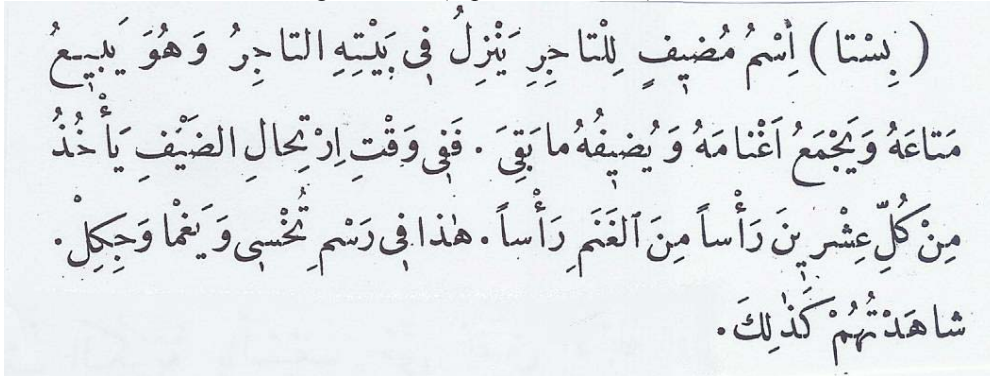 ( بِسْتا ) اِسْمُ مُضيٖفٍ لِلْتاجِرِ يَنْزِلُ فىٖ بَيْتِهِ التاجِرُ وَهُوَ يَبيٖعُ
مَتاعَهُ وَيَجْمَعُ اَغْنامَهُ وَيُضيٖفُهُ مابَقِىَ . فَفىٖ وَقْتِ اِرْتِحالِ الضَيْفِ يَأْخُذُ
مِنْ كُلِّ عِشْريٖنَ رَأْساً مِنَ ٱلْغَنَمِ رَأْساً . هٰذا فىٖ رَسْمِ تُخْسىٖ وَيَغْما وَجِكِلْ .
شاهَدْتُهُمْ كَذٰلِكَ .